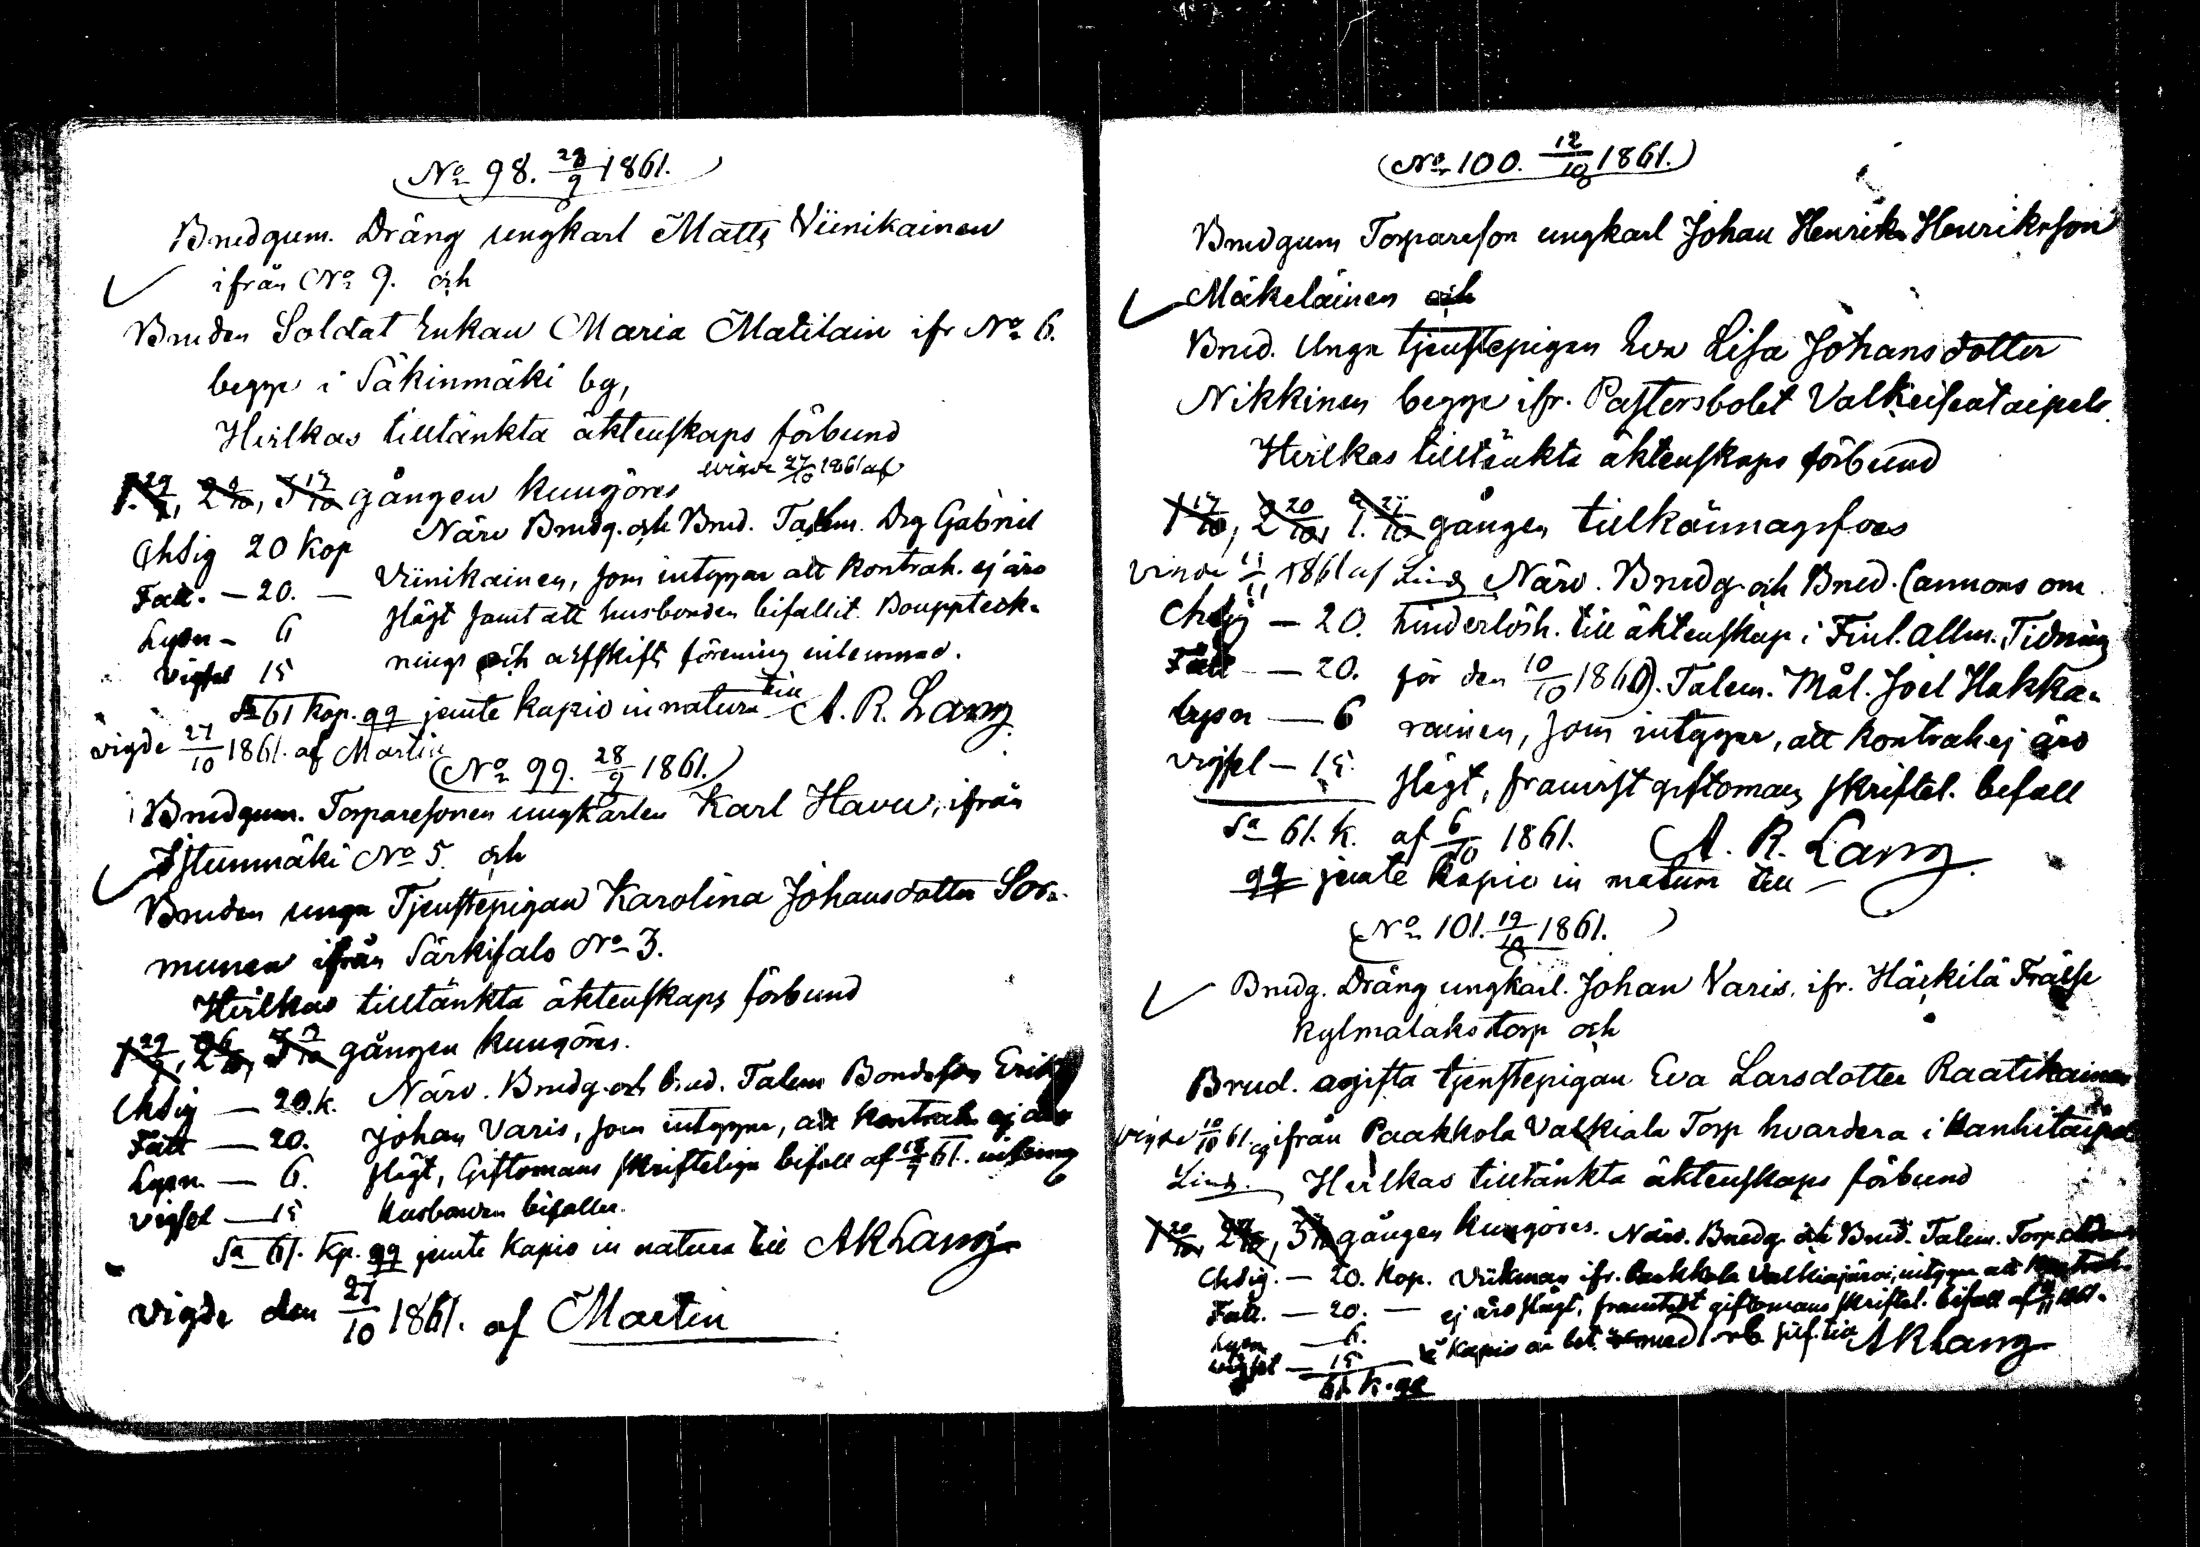 No 98. 28/9 1861.
Brudgum. Dräng ungkarl Matts Viinikainen
ifrån No 9. och
Bruden Soldat Enkan Maria Matilain ifr No 6.
begge i Säkinmäki by,
Hvilkas tilltänkta äktenskaps förbund
1. 29/9, 2 6/10, 3 13/10 gången kungöres vigde 27/10 1861 af
Närv Brudg. och Brud. Talem. Drg Gabriel
Chdig 20 Kop
Viinikainen, som intygar att kontrah. ej äro
Fatt. — 20. —
slägt samt att husbonden bifallit. Bouppteck-
Lysn — 6
nings och arfskifts förening inlemnad.
Vigsel 15
Sa 61 Kop. qq jemte Kapio in natura till A. R. Lang
vigde 27/10 1861. af Martin
No 99. 28/9 1861.
Brudgum. Torparesonen ungkarlen Karl Havu, ifrån
Istunmäki No 5. och
Bruden unga Tjenstepigan Karolina Johansdotter Sor-
munen ifrån Särkisalo No 3.
Hvilkas tilltänkta äktenskaps förbund
1 29/9, 2 6/10, 3 13/10 gången kungöres.
Närv. Brudg. och brud. Talem Bondeson Erik
Chdig — 20. k.
Johan Varis, som intygar, att kontrah ej äro
Fatt — 20.
slägt, Giftomans skriftliga bifall af 61.
Lysn. — 6.
husbonden bifaller.
Vigsel — 15
Sa 61. Kp. qq jemte Kapio in natura till AR Lang
Vigde den 27/10 1861. af Martin
No 100. 12/10 1861.
Brudgum Torpareson ungkarl Johan Henrik Henriksson
Mäkeläinen och
Brud. Unga tjenstepigan Eva Lisa Johansdotter
Nikkinen begge ifr. Pastorsbolet Valkeisentaipale
Hvilkas tilltänkta äktenskaps förbund
1 13/10, 2 20/10, 3. 27/10 gången tillkännagifves
1861 af Lind Närv. Brudg och Brud. (annons om
Chdig — 20.
hinderlösh. till äktenskap i Finl. Allm. Tidning
Fatt — 20.
för den 10/10 1861). Talem. Mål. Joel Hakka-
Lysn — 6
rainen, som intygar, att kontrah ej äro
Vigsel — 15.
slägt, framvist giftomans skriftel. bifall
Sa 61. k.
af 6/10 1861. A. R. Lang
qq jemte Kapio in natura till
No 101. 19/10 1861.
Brudg. Dräng ungkarl. Johan Varis, ifr. Härkilä Frälse
Kylmälaks torp och
Brud. ogifta tjenstepigan Eva Larsdotter Raatikainen
ifrån Paakkola Valkiala Torp hvardera i Hanhitaipal
Lind.
Hvilkas tilltänkta äktenskaps förbund
1 20/10, 2 27/10, 3 gången kungöres. Närv. Brudg och Brud. Talem. Torp
Chdig. — 20. Kop.
ifr. Paakkola Valkiajärvi, intygar att Kontrah.
Fatt. — 20. —
ej äro slägt, framtedt giftomans skriftel. bifall af 1861.
Lysn — 6.
Kapio är bet. med rb. silf. till AR Lang
Vigsel — 15
61 k. qq